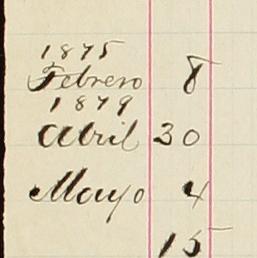 1875
Febrero 8
1879
Abril 30
Mayo 4
15